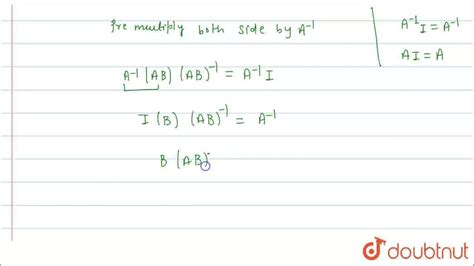 Pre multiply both side by A⁻¹
A⁻¹ (AB) (AB)⁻¹ = A⁻¹ I
I (B) (AB)⁻¹ = A⁻¹
B (AB)⁻
A⁻¹ I = A⁻¹
AI = A
doubtnut